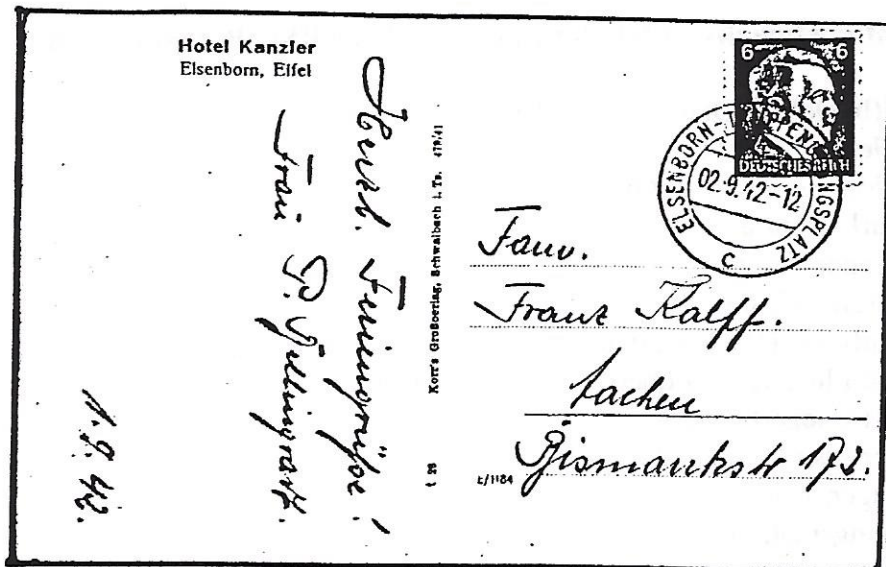 Hotel Kanzler
Elsenborn, Eifel
Herzl. Feriengrüße!
Frau P.
1.9.42.
Korr's Großverlag, Schwalbach i. Ts. 478/41
t 28
6 6
DEUTSCHES REICH
ELSENBORN-TRUPPENÜBUNGSPLATZ
02.9.42-12
c
Fam.
Franz Kalff.
Aachen
Bismarkstr 172.
E/1184